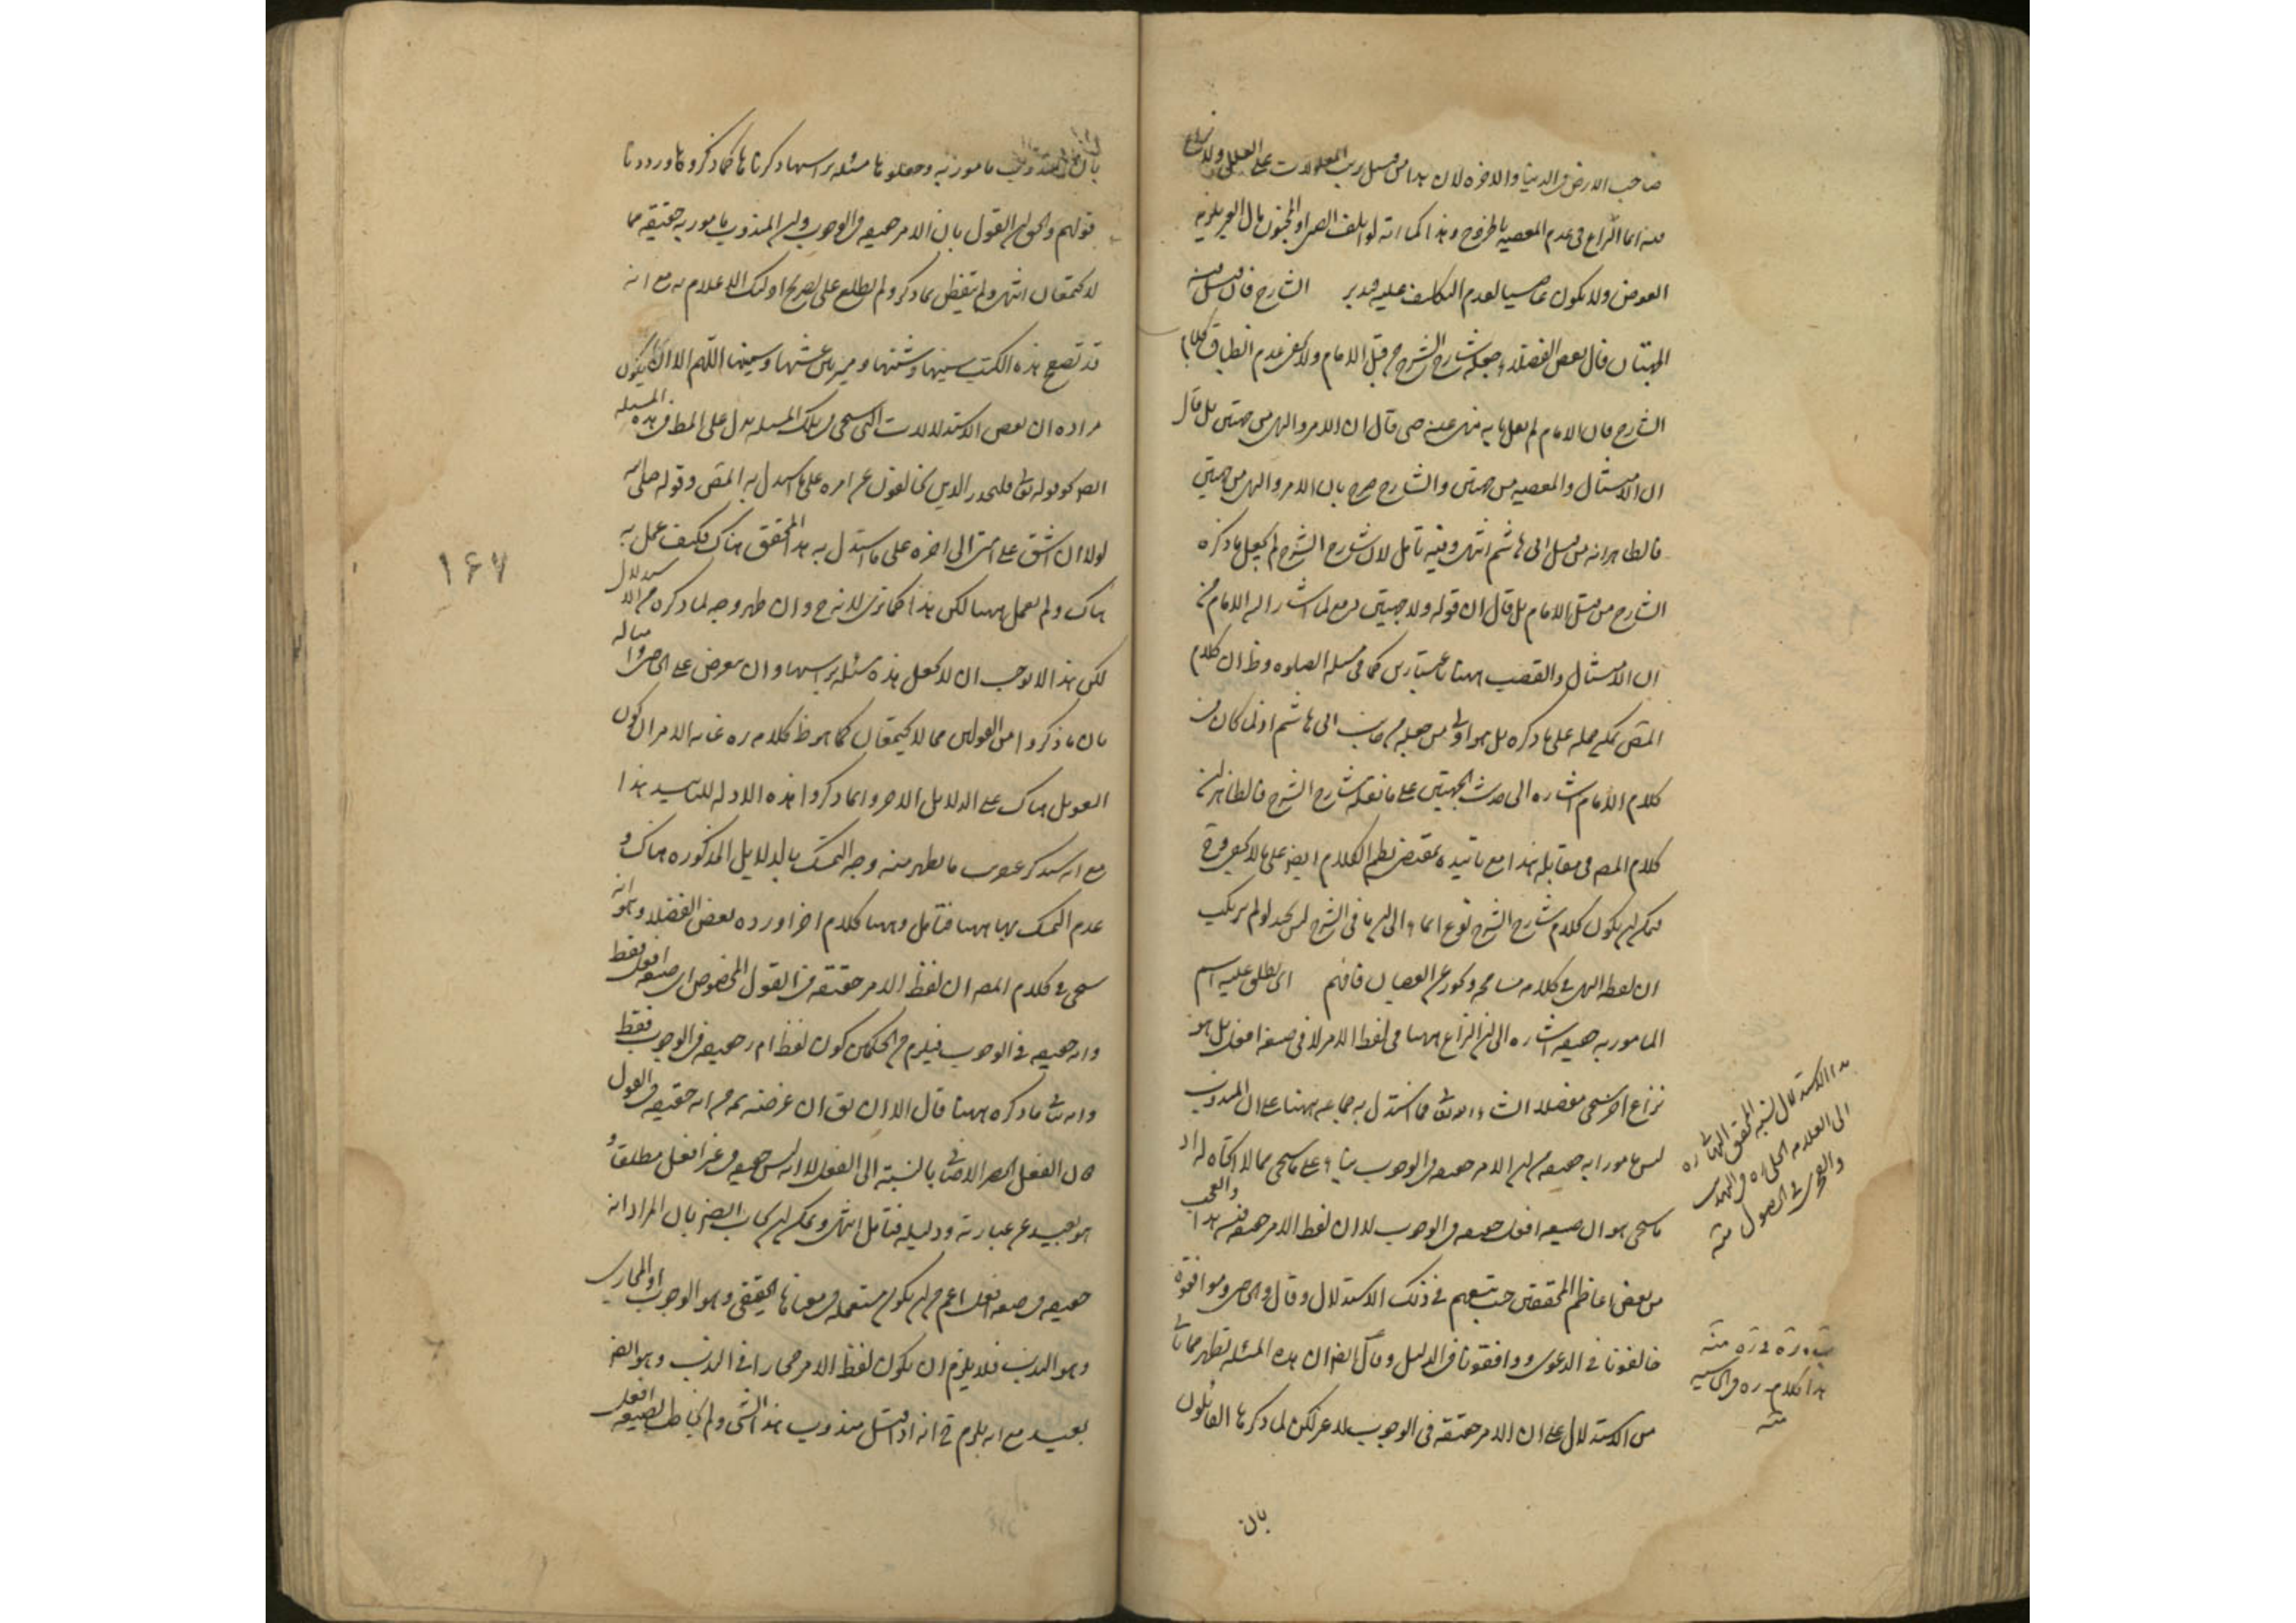 صاحب الارض في الدنيا والاخره لان هذا من قبيل ترتب المعلولات على العلل ولا
منه انما النزاع في عدم المعصيه بالخروج وهذا كما انه لو اتلف الصبي او المجنون مال الغير يلزمه
العوض ولا يكون عاصيا لعدم التكليف عليه فتدبر الشارح فان قيل فيه
الجهتان قال بعض الفضلاء جعله شارح الشرح من قبل الامام ولا يخفى عدم انطباق كلام
الشارح فان الامام لم يقل بانه منهي عنه حتى قال ان الامر والنهي من جهتين بل قال
ان الامتثال والمعصيه من جهتين والشارح صرح بان الامر والنهي من جهتين
فالظاهر انه من قبل ابي هاشم انتهى وفيه تامل لان شارح الشرح لم يجعل ما ذكره
الشارح من قبل الامام بل قال ان قوله ولا جهتين دفع لما اشار اليه الامام من
ان الامتثال والغصب ههنا باعتبارين كما في مسئلة الصلوه وظ ان كلام
المص يمكن حمله على ما ذكره بل هو اولى من جعله من جانب ابي هاشم اذ لما كان في
كلام الامام اشاره الى حديث الجهتين على ما نقله شارح الشرح فالظاهر ان
كلام المص في مقابله هذا مع تاييده بمقتضى نظم الكلام ايضا على ما لا يخفى
فيمكن ان يكون كلام شارح الشرح نوع ايماء الى ان ما في الشرح ليس بجيد لو لم يرتكب
ان لفظ النهي في كلامه مسامحه وتجوز عن العصيان فافهم اي يطلق عليه اسم
المامور به حقيقه اشاره الى ان النزاع ههنا في لفظ الامر لا في صيغه افعل بل هو
نزاع اخر سيجي مفصلا انشاء الله تعالى فما استدل به جماعه ههنا على ان المندوب
ليس مامورا به حقيقه من ان الامر حقيقه في الوجوب بناء على ما سيجي مما لا اتجاه له اذ
ما سيجي هو ان صيغه افعل حقيقه في الوجوب لا ان لفظ الامر حقيقه فيه هذا والعجب
من بعض اعاظم المحققين حيث تبعهم في ذلك الاستدلال وقال والحاصل وموافقوه
خالفونا في الدعوى ووافقونا في الدليل وقال ايضا ان هذه المسئله تظهر مما ياتي
من الاستدلال على ان الامر حقيقه في الوجوب لا غير لكن لما ذكرها القائلون
بان
هذا الاستدلال نسبه المحقق البهائي ره
الى العلامه الحلي ره في التهذيب
والفخر في المحصول منه
هذا كلامه ره في الحاشيه
منه
بان المندوب مامور به وجعلوها مسئله براسها ذكرناها كما ذكروها ورددنا
قولهم والحق ان القول بان الامر حقيقه في الوجوب وان المندوب مامور به حقيقه مما
لا يجتمعان انتهى ولم يتفطن بما ذكر ولم يطلع على تصريح اولئك الاعلام به مع انه
قد تصفح هذه الكتب سينها وشينها وميز بين غثها وسمينها اللهم الا ان يكون
مراده ان بعض الاستدلالات التي سيجي في تلك المسئله يدل على المط في هذه المسئله
ايضا كقوله تعالى فليحذر الذين يخالفون عن امره على ما استدل به المص وقوله صلى الله
لولا ان اشق على امتي الى اخره على ما استدل به هذا المحقق هناك فكيف عمل به
هناك ولم يعمل ههنا لكن هذا كما ترى لا يزيح وان ظهر وجه لما ذكره من الاستدلال
لكن هذا لا يوجب ان لا يجعل هذه مسئله براسها وان يعترض على الحاصل وامثاله
بان ما ذكروا من القولين مما لا يجتمعان كما هو ظ كلامه ره غايه الامر ان يكون
التعويل هناك على الدلايل الاخر وانما ذكروا هذه الادله للتاييد هذا
مع انه سنذكر عنقريب ما يظهر منه وجه التمسك بالدلايل المذكوره هناك و
عدم التمسك بها ههنا فتامل وههنا كلام اخر اورده بعض الفضلاء وهو انه
سيجي في كلام المص ان لفظ الامر حقيقه في القول المخصوص اي صيغه افعل فقط
وانه حقيقه في الوجوب فيلزم من الحكمين كون لفظ ام ر حقيقه في الوجوب فقط
وانه ينافي ما ذكره ههنا قال الا ان يق ان غرضه ثمه من انه حقيقه في القول
كان الفعل الحصر الاضافي بالنسبه الى الفعل لا انه ليس حقيقه في غير افعل مطلقا و
هو بعيد عن عبارته ودليله فتامل انتهى ويمكن ان يجاب ايضا بان المراد انه
حقيقه في صيغه افعل اعم من ان يكون مستعمله في معناها الحقيقي وهو الوجوب او المجازي
وهو الندب فلا يلزم ان يكون لفظ الامر مجازا في الندب وهو ايضا
بعيد مع انه يلزم ح انه اذا قيل مندوب هذا الشي ولم يخاطب بصيغه افعل
١٦٧